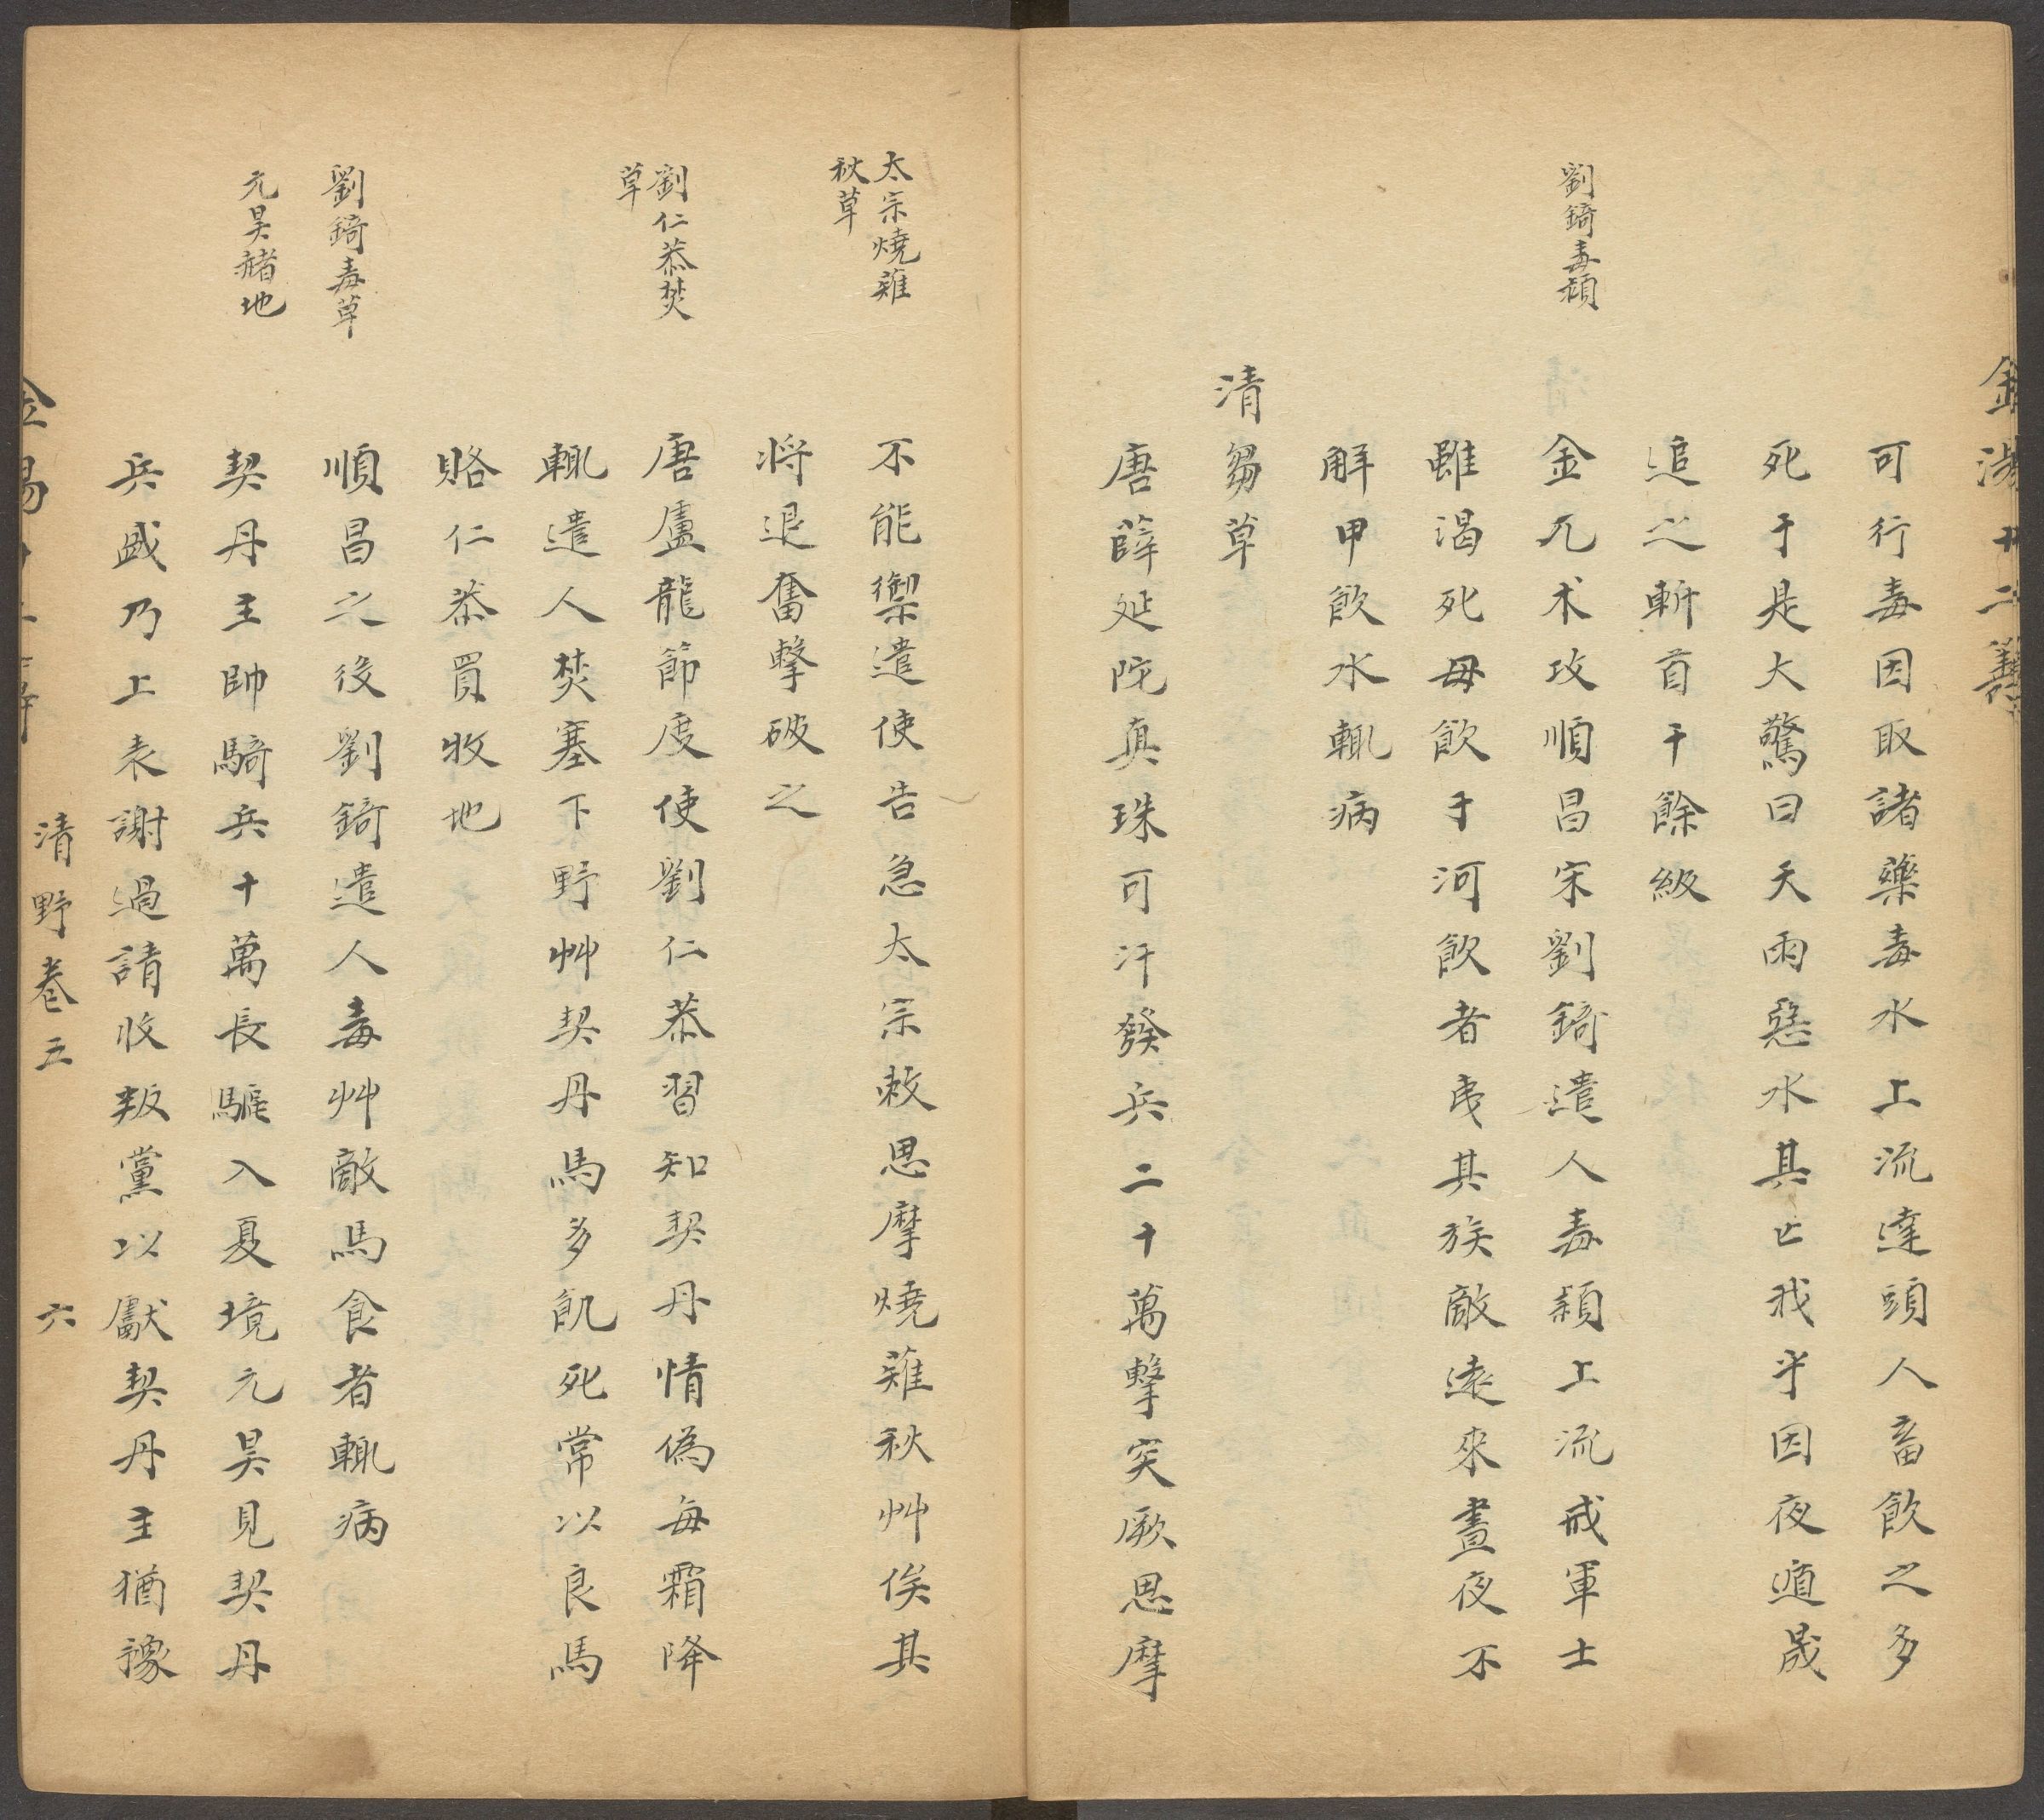 金湯十二籌
劉錡毒潁
可行毒因取諸藥毒水上流達頭人畜飲之多
死于是大驚曰天雨惡水其亡我乎因夜遁晟
追之斬首千餘級
金兀朮攻順昌宋劉錡遣人毒潁上流戒軍士
雖渴死毋飲于河飲者夷其族敵遠來晝夜不
解甲飲水輒病
清芻草
唐薛延陀真珠可汗發兵二十萬擊突厥思摩
太宗燒薙
秋草
不能禦遣使告急太宗敕思摩燒薙秋艸俟其
將退奮擊破之
劉仁恭焚
草
唐盧龍節度使劉仁恭習知契丹情偽每霜降
輒遣人焚塞下野艸契丹馬多飢死常以良馬
賂仁恭買牧地
劉錡毒草
順昌之後劉錡遣人毒艸敵馬食者輒病
元昊赭地
契丹主帥騎兵十萬長驅入夏境元昊見契丹
兵盛乃上表謝過請收叛黨以獻契丹主猶豫
清野卷五 六